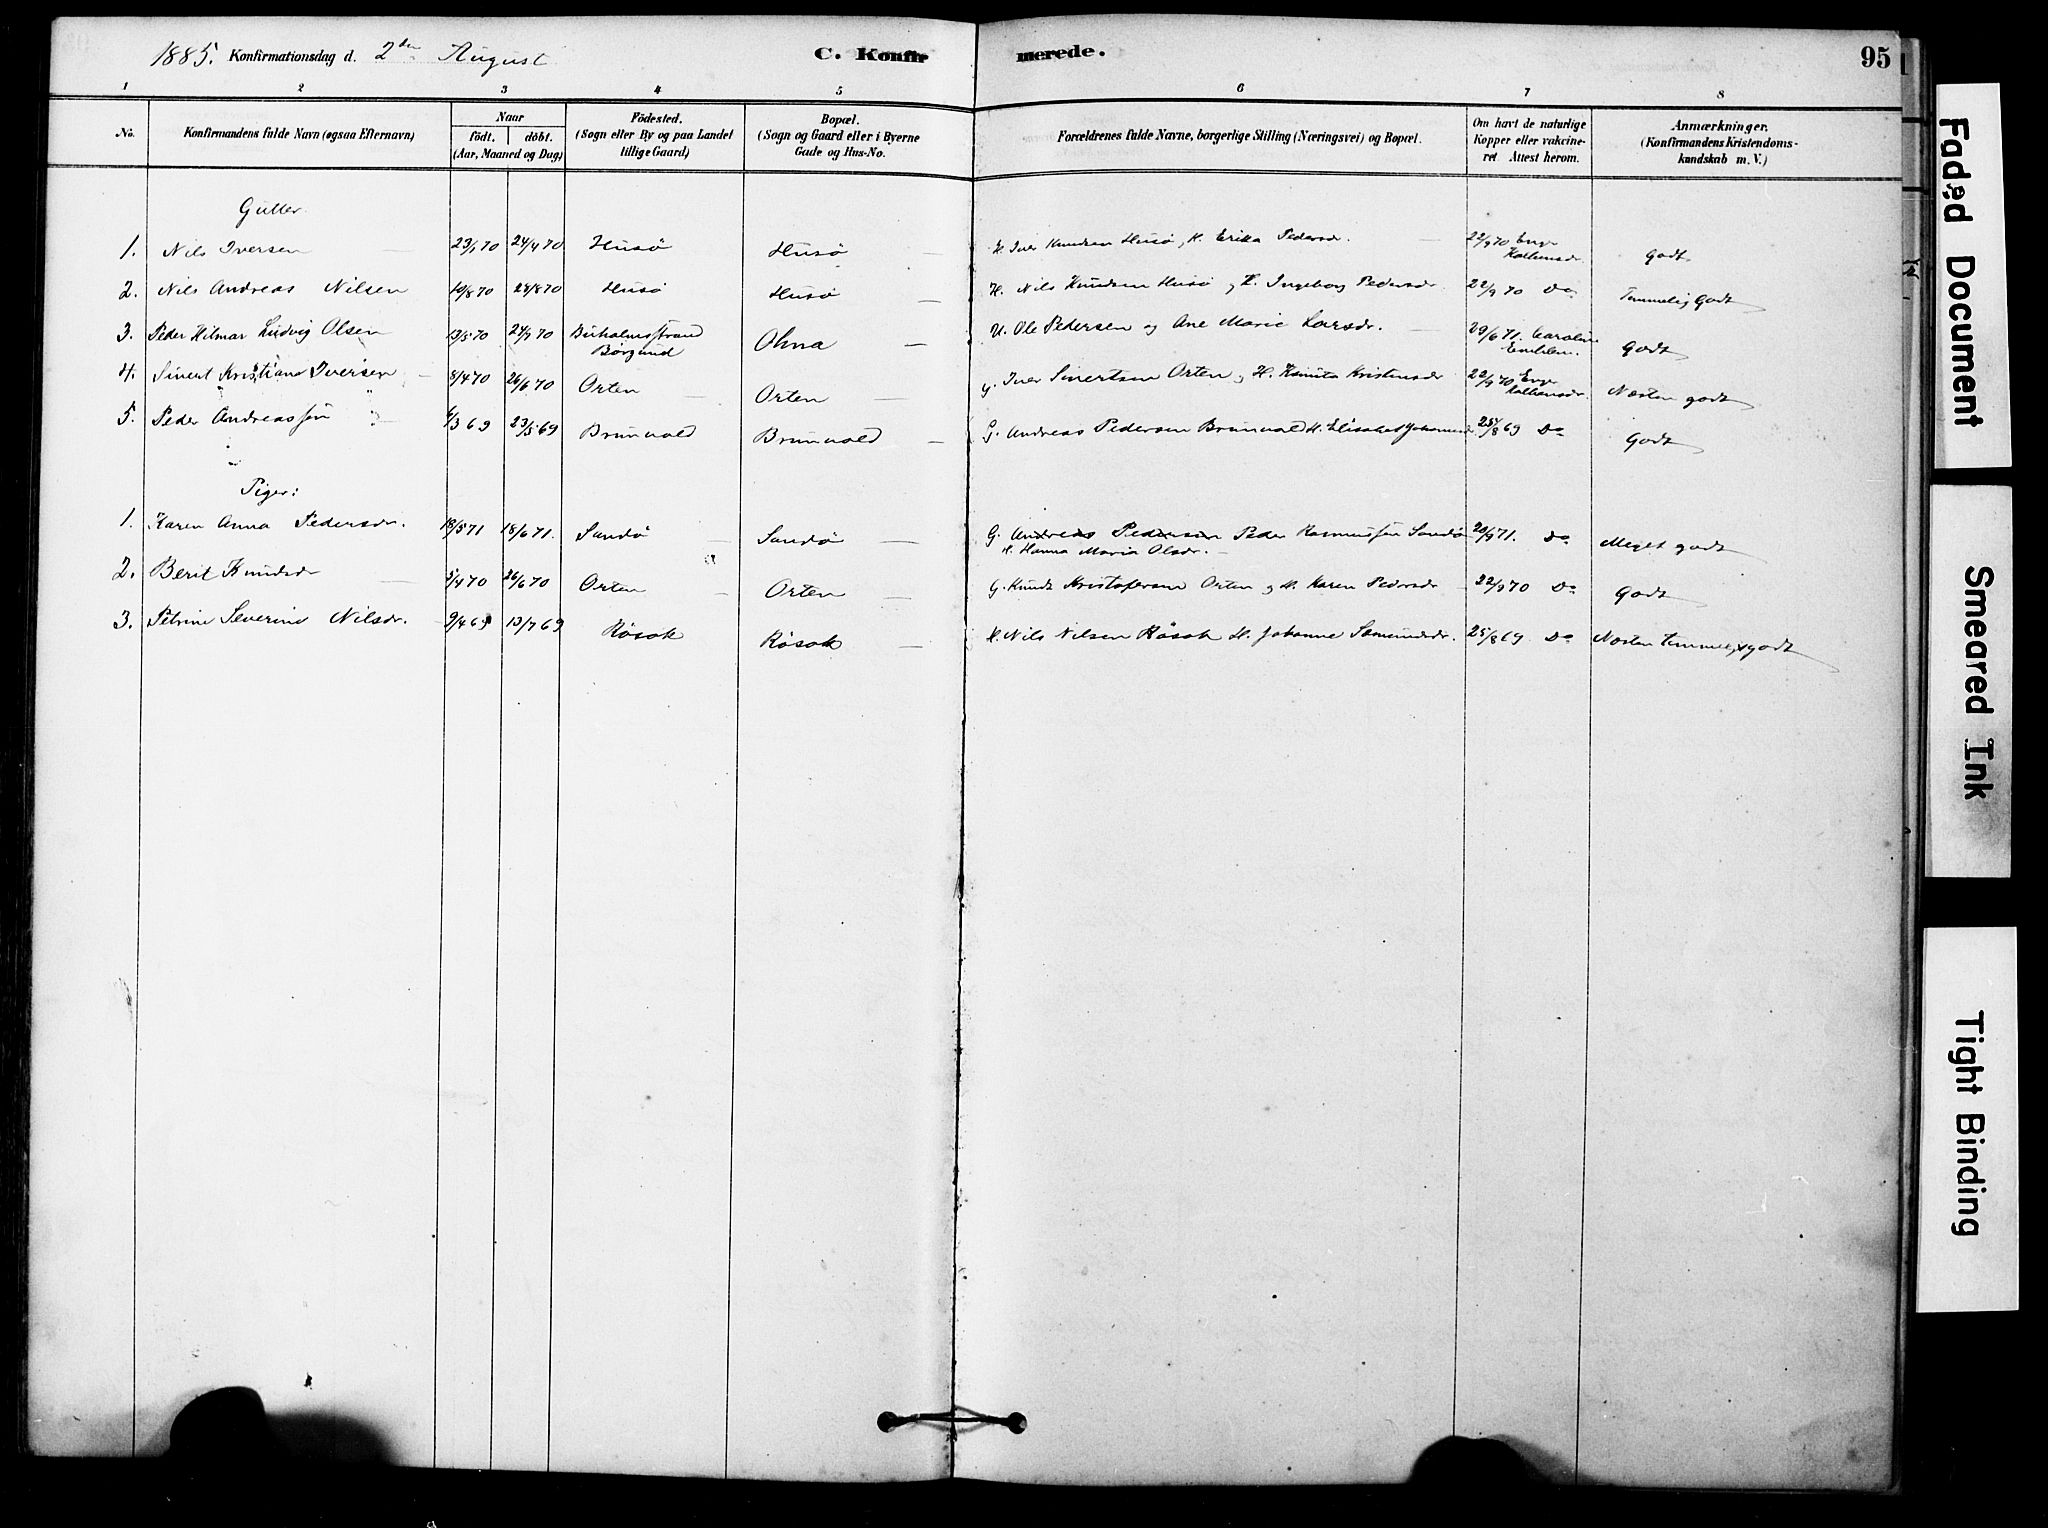 1885. Konfirmationsdag d. 2den August C. Konfirmerede. 95
1 2 3 4 5 6 7 8
No. Konfirmandens fulde Navn (ogsaa Efternavn) Naar födt. döbt. (Aar, Maaned og Dag) Födested. (Sogn eller By og paa Landet tillige Gaard) Bopæl. (Sogn og Gaard eller i Byerne Gade og Hus-No. Forældrenes fulde Navne, borgerlige Stilling (Næringsvei) og Bopæl. Om havt de naturlige Kopper eller vakcineret. Attest herom. Anmærkninger. (Konfirmandens Kristendomskundskab m. V.)
Gutter.
1. Nils Iversen 23/1 70 24/4 70 Husö Husö H. Iver Knudsen Husö, H. Erika Pedersdr. 22/9 70 Godt
2. Nils Andreas Nilsen 19/8 70 28/8 70 Husö Husö H. Nils Knudsen Husö og H. Ingeborg Pedersdr 22/9 70 Do Temmelig Godt
3. Peder Hilmar Ludvig Olsen 13/5 70 24/7 70 Borgund Ohna U. Ole Pedersen og Ane Marie Larsdr. 29/6 71. Caroline Emblem. Godt
4. Sivert Kristian Iversen 8/4 70 26/6 70 Orten Orten G. Iver Sivertsen Orten og H. Kristensdr 22/9 70 Næsten godt
5. Peder Andreassen 4/3 69 23/5 69 Brunvold Brunvold G. Andreas Pedersen Brunvold H. Elisabet 25/8 69 Do Godt
Piger:
1. Karen Anna Pedersdr. 18/5 71 18/6 71. Sandö Sandö G. Andreas Pedersen Peder Rasmussen Sandö H. Hanna Maria Olsdr. 20/9 71. Do Meget godt
2. Berit Knudsdr 5/4 70 26/6 70 Orten Orten G. Knud Kristofersen Orten og H. Karen Pedersdr 22/9 70 Do Godt
3. Petrine Severine Nilsdr. 9/4 69 13/7 69 Rösok Rösok H. Nils Nilsen Rösok H. Johanne 25/8 69 Do Næsten temmelig godt
Faded Document
Smeared Ink
Tight Binding